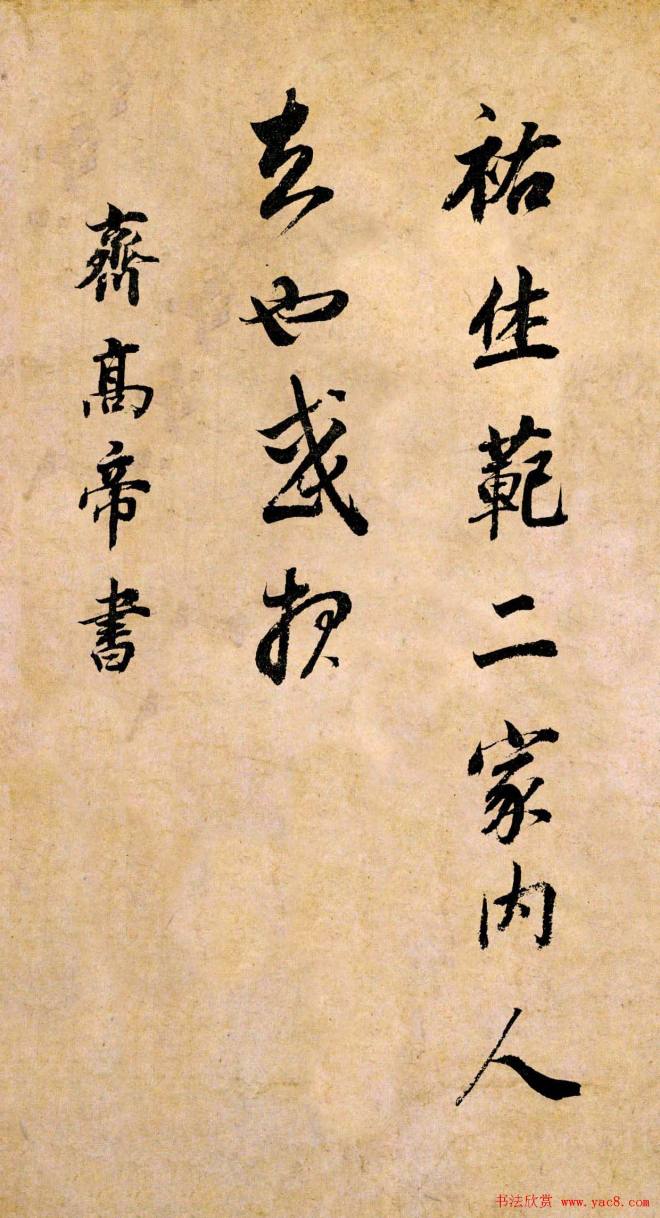 祐佳範二家内人
去也或
齊高帝書
书法欣赏 www.yac8.com